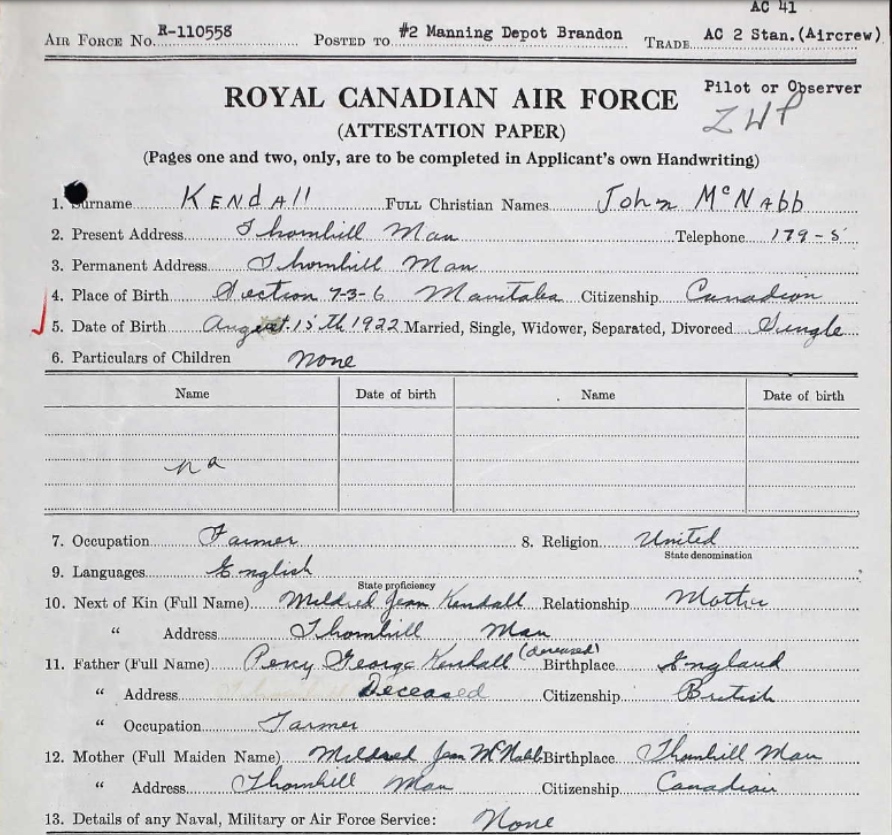 AC 41
AIR FORCE No. R-110558 POSTED TO #2 Manning Depot Brandon TRADE AC 2 Stan.(Aircrew)
Pilot or Observer
ROYAL CANADIAN AIR FORCE
(ATTESTATION PAPER)
(Pages one and two, only, are to be completed in Applicant's own Handwriting)
1. Surname KENdAll FULL Christian Names John McNAbb
2. Present Address Thornhill Man Telephone 179-5
3. Permanent Address Thornhill Man
4. Place of Birth Section 7-3-6 Manitoba Citizenship Canadian
5. Date of Birth August 15th 1922 Married, Single, Widower, Separated, Divorced Single
6. Particulars of Children None
Name Date of birth Name Date of birth
na
7. Occupation Farmer 8. Religion United
State denomination
9. Languages English
State proficiency
10. Next of Kin (Full Name) Mildred Jean Kendall Relationship Mother
" Address Thornhill Man
11. Father (Full Name) Percy George Kendall (deceased) Birthplace England
" Address Deceased Citizenship British
" Occupation Farmer
12. Mother (Full Maiden Name) Mildred Jean McNabb Birthplace Thornhill Man
" Address Thornhill Man Citizenship Canadian
13. Details of any Naval, Military or Air Force Service: None